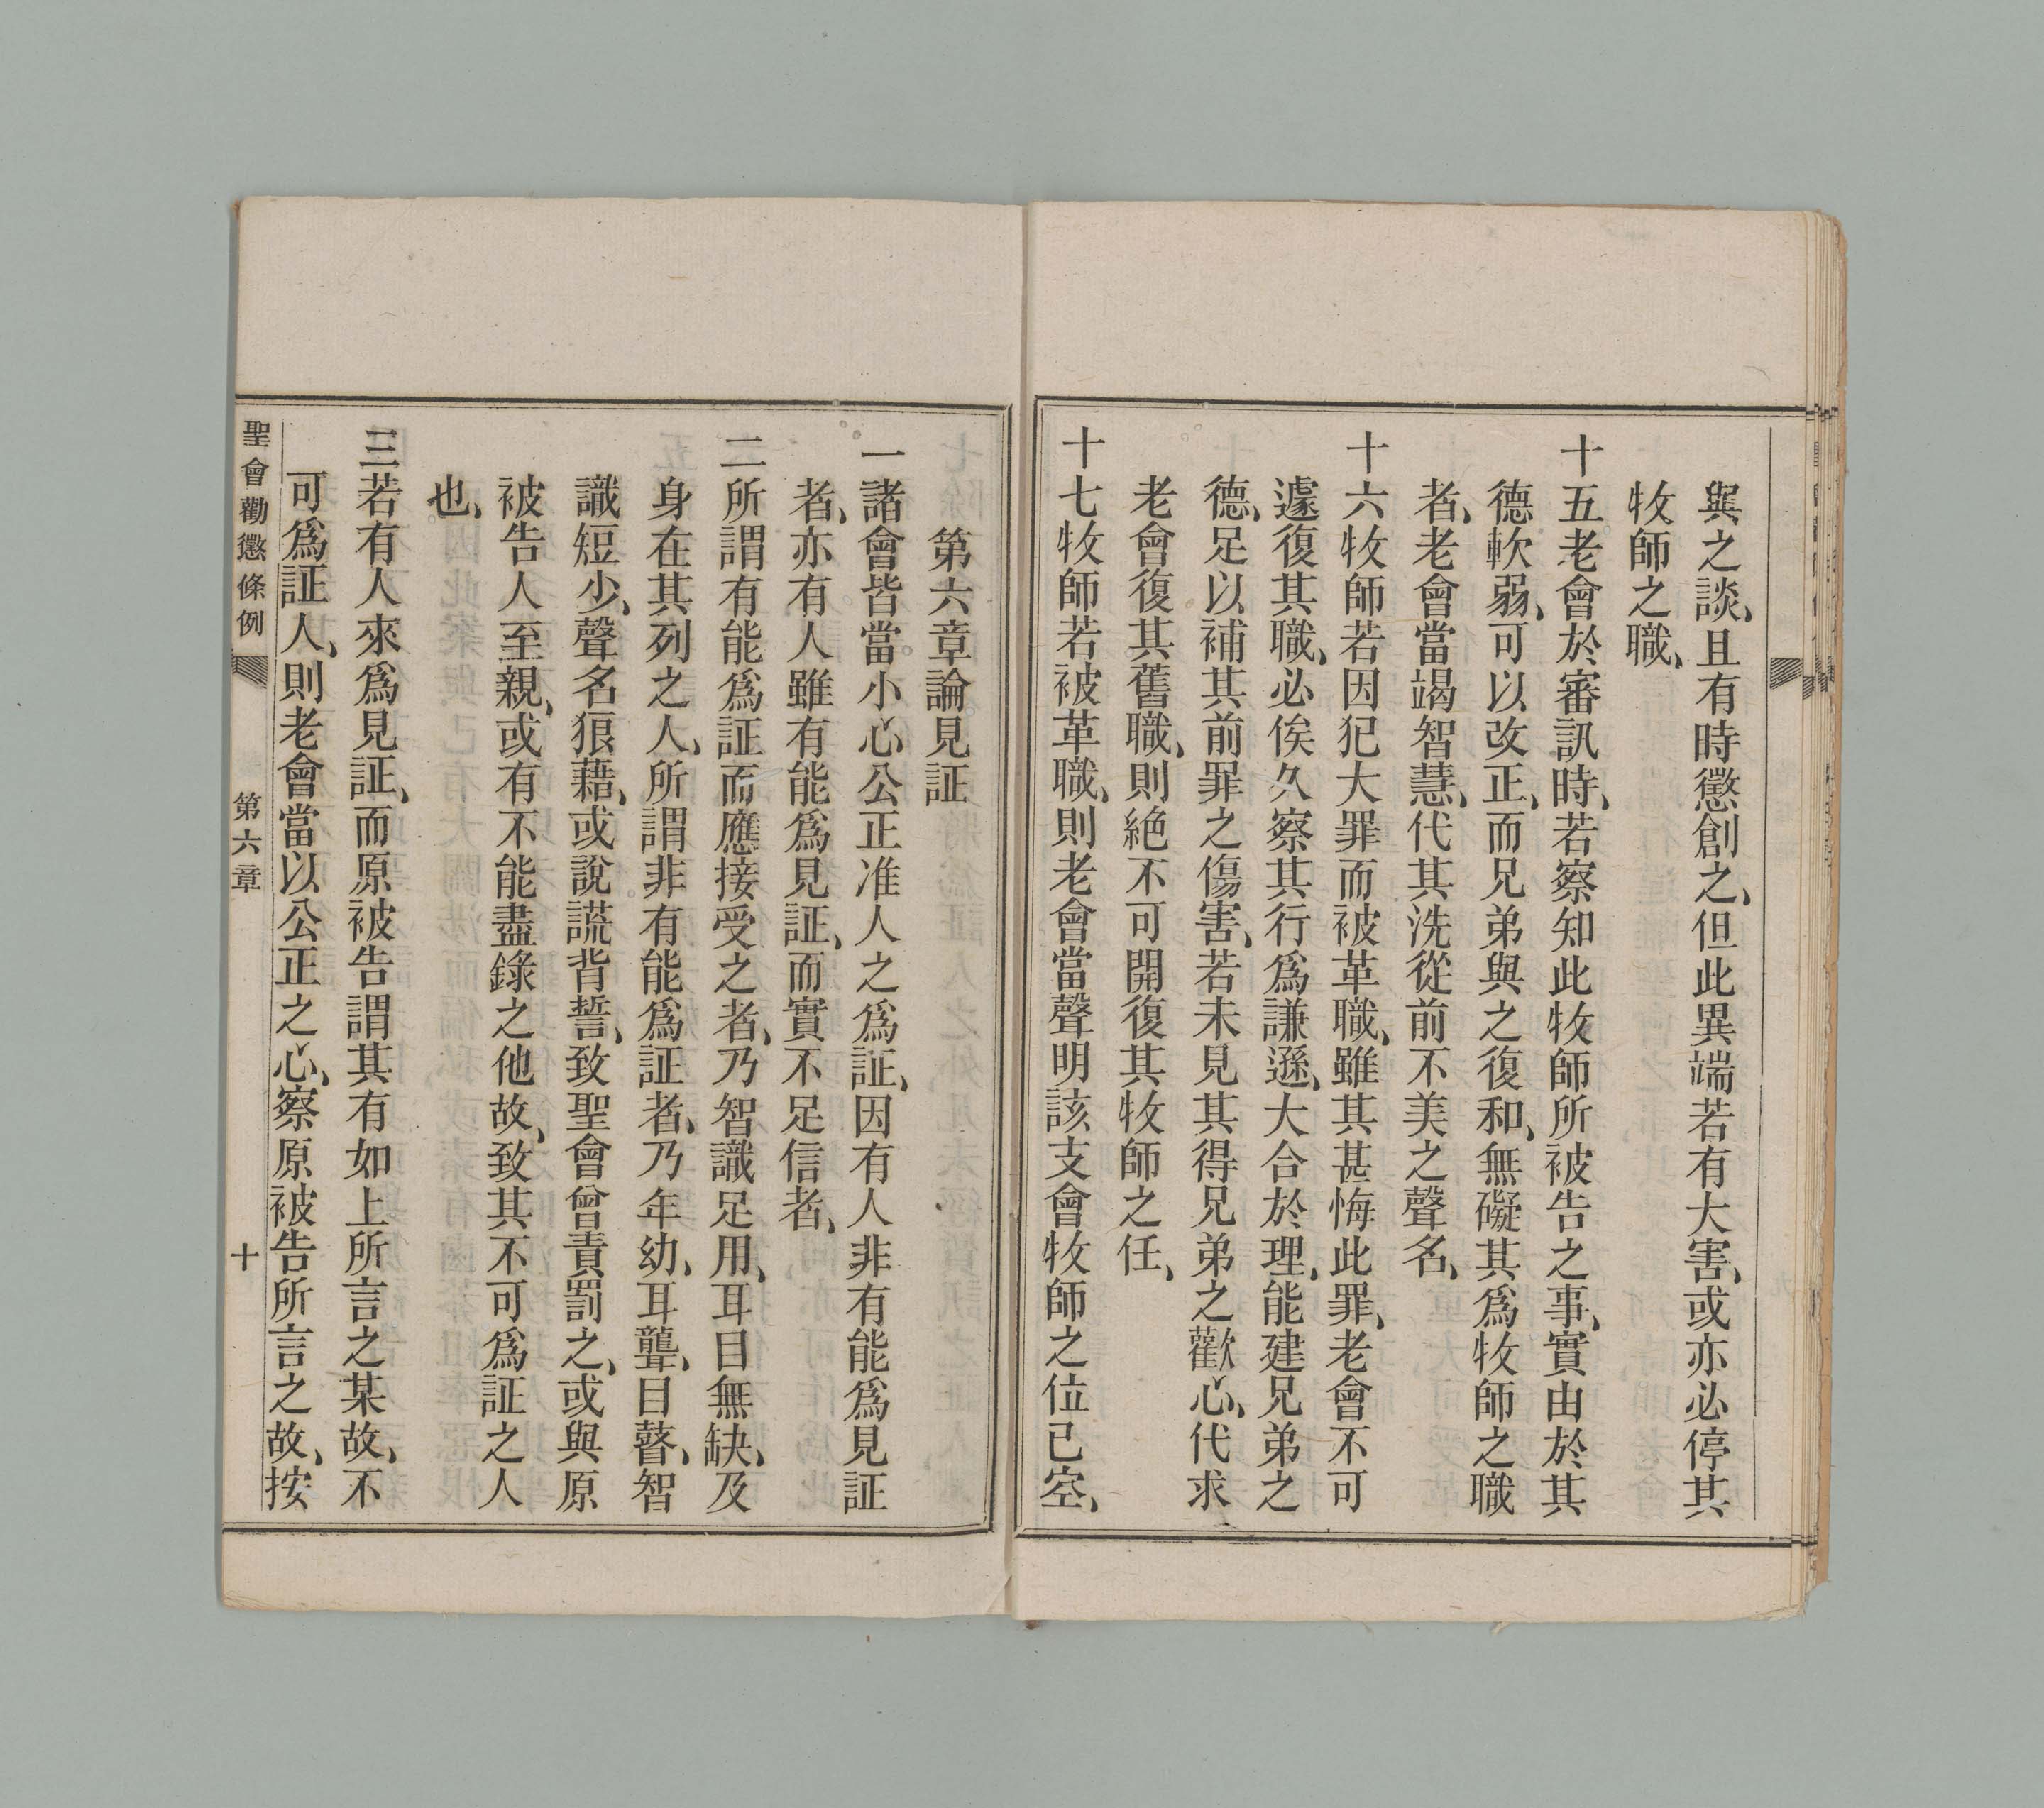 與之談、且有時懲創之、但此異端若有大害、或亦必停其
牧師之職、
十五老會於審訊時、若察知此牧師所被告之事、實由於其
德軟弱、可以改正、而兄弟與之復和、無礙其爲牧師之職
者、老會當竭智慧、代其洗從前不美之聲名、
十六牧師若因犯大罪而被革職、雖其甚悔此罪、老會不可
遽復其職、必俟久察其行爲謙遜、大合於理、能建兄弟之
德、足以補其前罪之傷害、若未見其得兄弟之歡心、代求
老會復其舊職、則絕不可開復其牧師之任、
十七牧師若被革職、則老會當聲明該支會牧師之位已空、
第六章論見証
一諸會皆當小心公正准人之爲証、因有人非有能爲見証
者、亦有人雖有能爲見証、而實不足信者、
二所謂有能爲証而應接受之者、乃智識足用、耳目無缺、及
身在其列之人、所謂非有能爲証者、乃年幼、耳聾、目瞽、智
識短少、聲名狼藉、或說謊背誓、致聖會曾責罰之、或與原
被告人至親、或有不能盡錄之他故、致其不可爲証之人
也、
三若有人來爲見証、而原被告謂其有如上所言之某故、不
可爲証人、則老會當以公正之心、察原被告所言之故、按
聖會勸懲條例 第六章 十